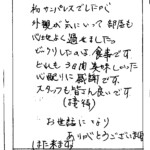 初サンパレスでしたが
外観が気にいって部屋も
心地よく過せました。
ビックリしたのは、食事です
どれも30周美味しいった
心配りに感謝です。
スタッフも皆さん良いです
(接待)
お世話になり
ありがとうございます
(また来ます)